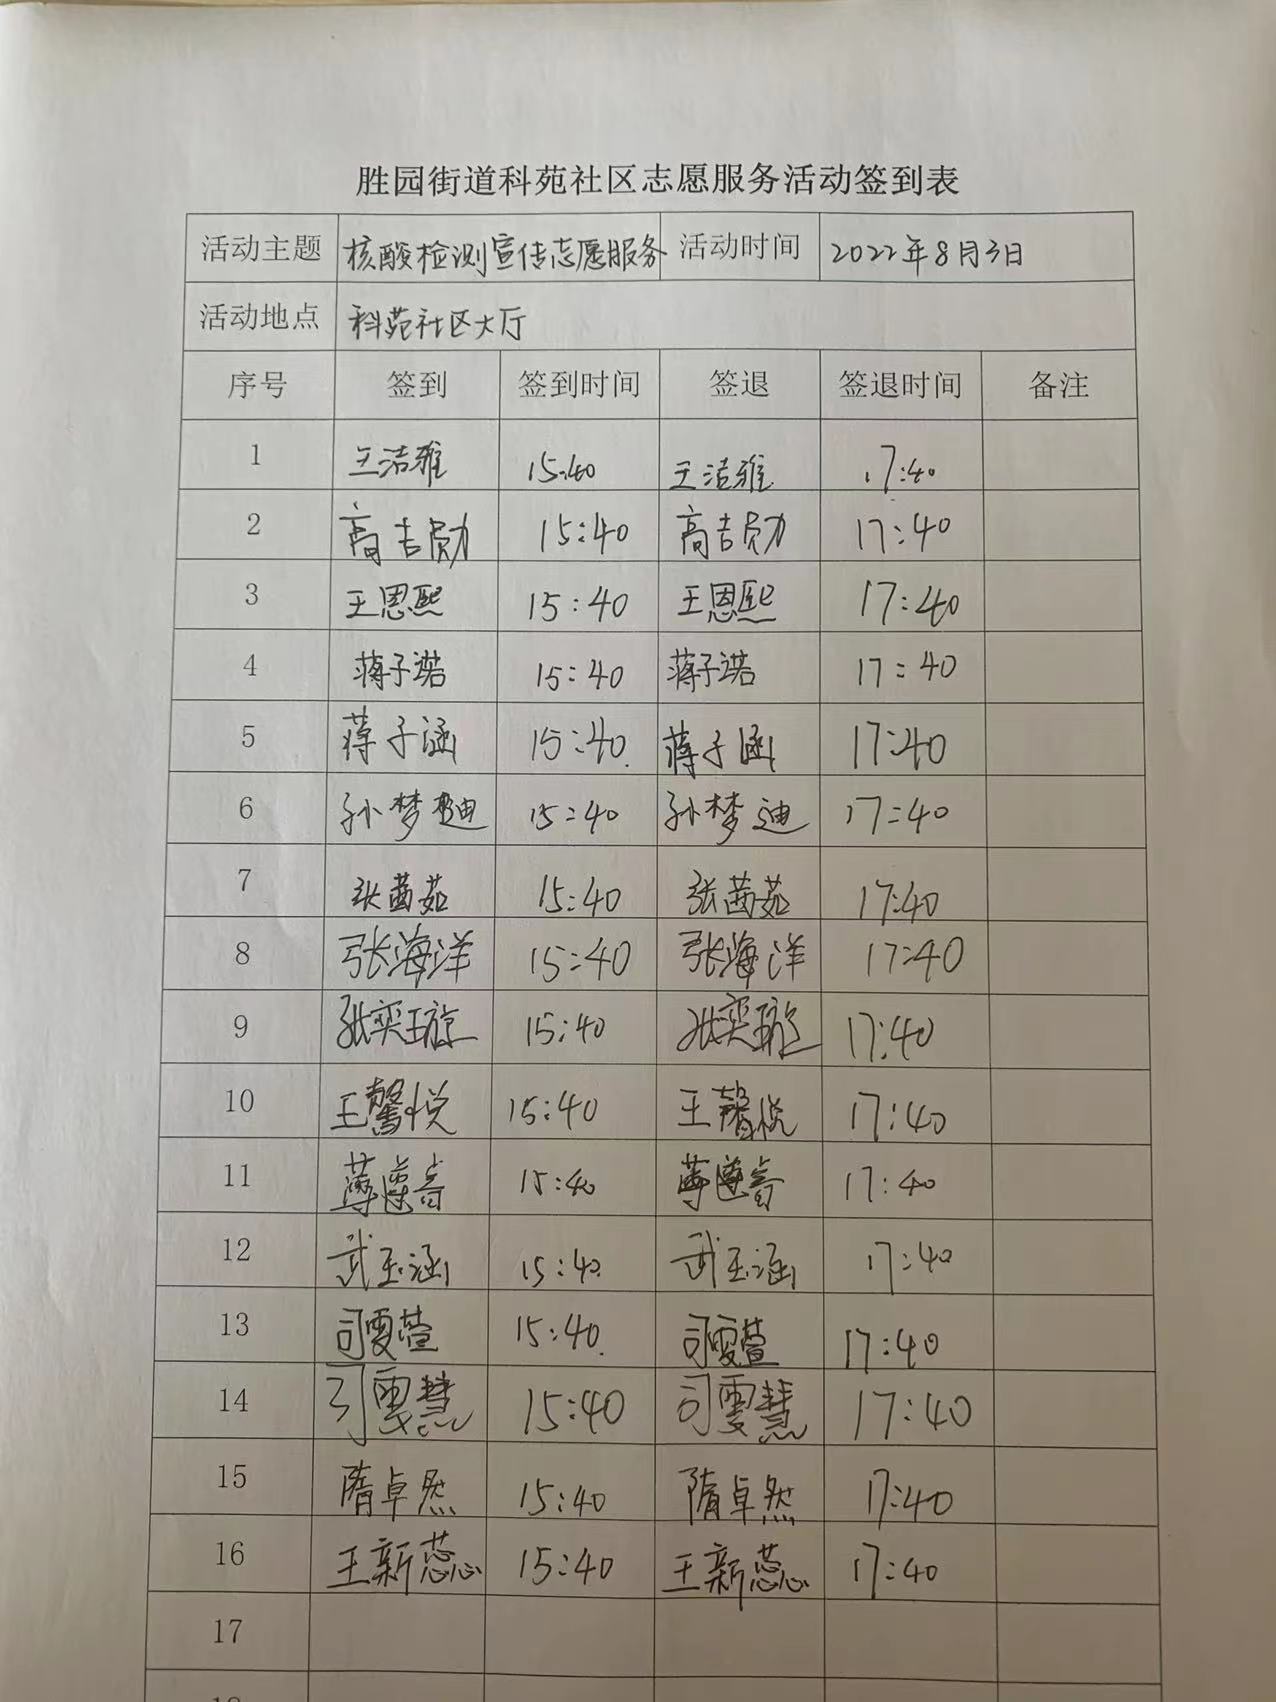 胜园街道科苑社区志愿服务活动签到表
活动主题 核酸检测宣传志愿服务 活动时间 2022年8月3日
活动地点 科苑社区大厅
序号 签到 签到时间 签退 签退时间 备注
1 王洁雅 15:40 王洁雅 17:40
2 高吉勋 15:40 高吉勋 17:40
3 王恩熙 15:40 王恩熙 17:40
4 蒋子诺 15:40 蒋子诺 17:40
5 蒋子涵 15:40 蒋子涵 17:40
6 孙梦迪 15:40 孙梦迪 17:40
7 张茜茹 15:40 张茜茹 17:40
8 张海洋 15:40 张海洋 17:40
9 张奕璇 15:40 张奕璇 17:40
10 王馨悦 15:40 王馨悦 17:40
11 15:40 17:40
12 武玉涵 15:40 武玉涵 17:40
13 司雯萱 15:40 司雯萱 17:40
14 司雯慧 15:40 司雯慧 17:40
15 隋卓然 15:40 隋卓然 17:40
16 王新蕊 15:40 王新蕊 17:40
17